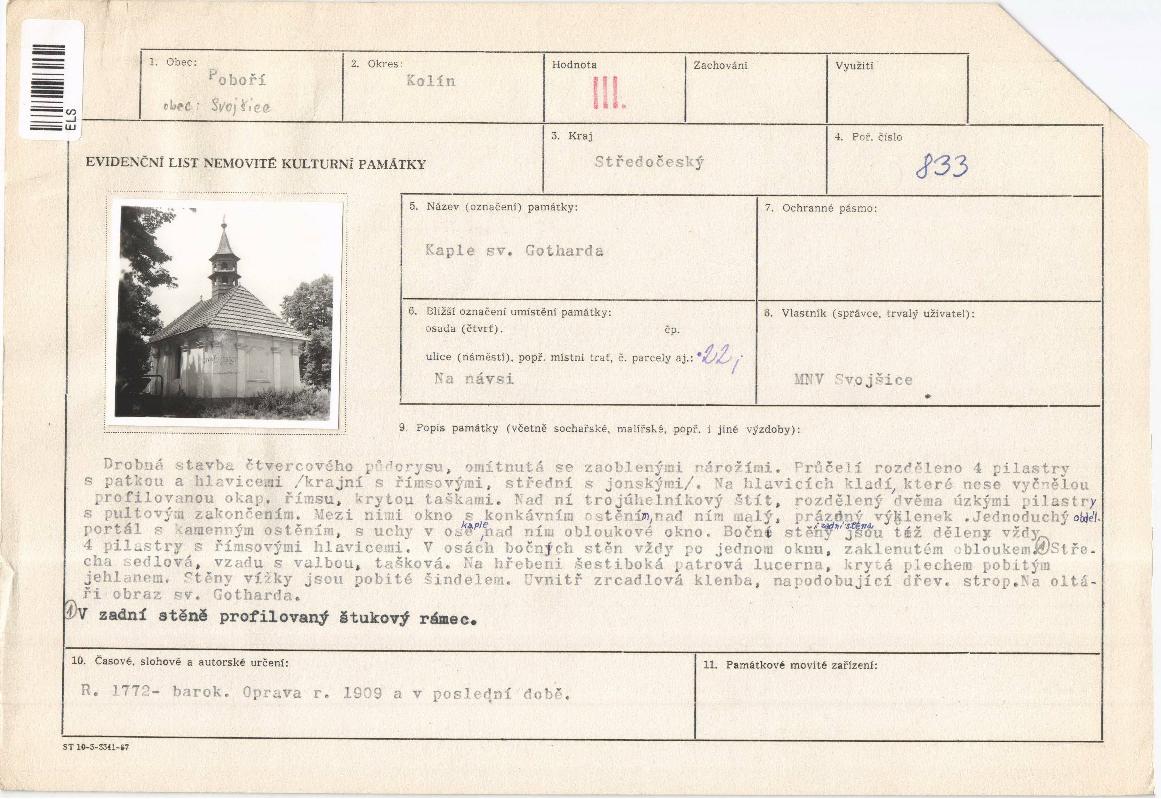 ELS
1. Obec:
Poboří
obec: Svojšice
2. Okres:
Kolín
Hodnota
III.
Zachování
Využití
EVIDENČNÍ LIST NEMOVITÉ KULTURNÍ PAMÁTKY
3. Kraj
Středočeský
4. Poř. číslo
833
5. Název (označení) památky:
Kaple sv. Gotharda
7. Ochranné pásmo:
6. Bližší označení umístění památky:
osada (čtvrť). čp.
ulice (náměstí), popř. místní trať, č. parcely aj.: 22,
Na návsi
8. Vlastník (správce, trvalý uživatel):
MNV Svojšice
9. Popis památky (včetně sochařské, malířské, popř. i jiné výzdoby):
Drobná stavba čtvercového půdorysu, omítnutá se zaoblenými nárožími. Průčelí rozděleno 4 pilastry
s patkou a hlavicemi /krajní s římsovými, střední s jonskými/. Na hlavicích kladí, které nese vyčnělou
profilovanou okap. římsu, krytou taškami. Nad ní trojúhelníkový štít, rozdělený dvěma úzkými pilastry
s pultovým zakončením. Mezi nimi okno s konkávním ostěním, nad ním malý, prázdný výklenek .Jednoduchý obděl.
portál s kamenným ostěním, s uchy v ose kaple, nad ním obloukové okno. Boční i zadní stěna stěny jsou též děleny vždy
4 pilastry s římsovými hlavicemi. V osách bočných stěn vždy po jednom oknu, zaklenutém obloukem. ① Stře-
cha sedlová, vzadu s valbou, tašková. Na hřebeni šestiboká patrová lucerna, krytá plechem pobitým
jehlanem. Stěny vížky jsou pobité šindelem. Uvnitř zrcadlová klenba, napodobující dřev. strop.Na oltá-
ři obraz sv. Gotharda.
① V zadní stěně profilovaný štukový rámec.
10. Časové, slohové a autorské určení:
R. 1772- barok. Oprava r. 1909 a v poslední době.
11. Památkové movité zařízení:
ST 10-3-3341-67